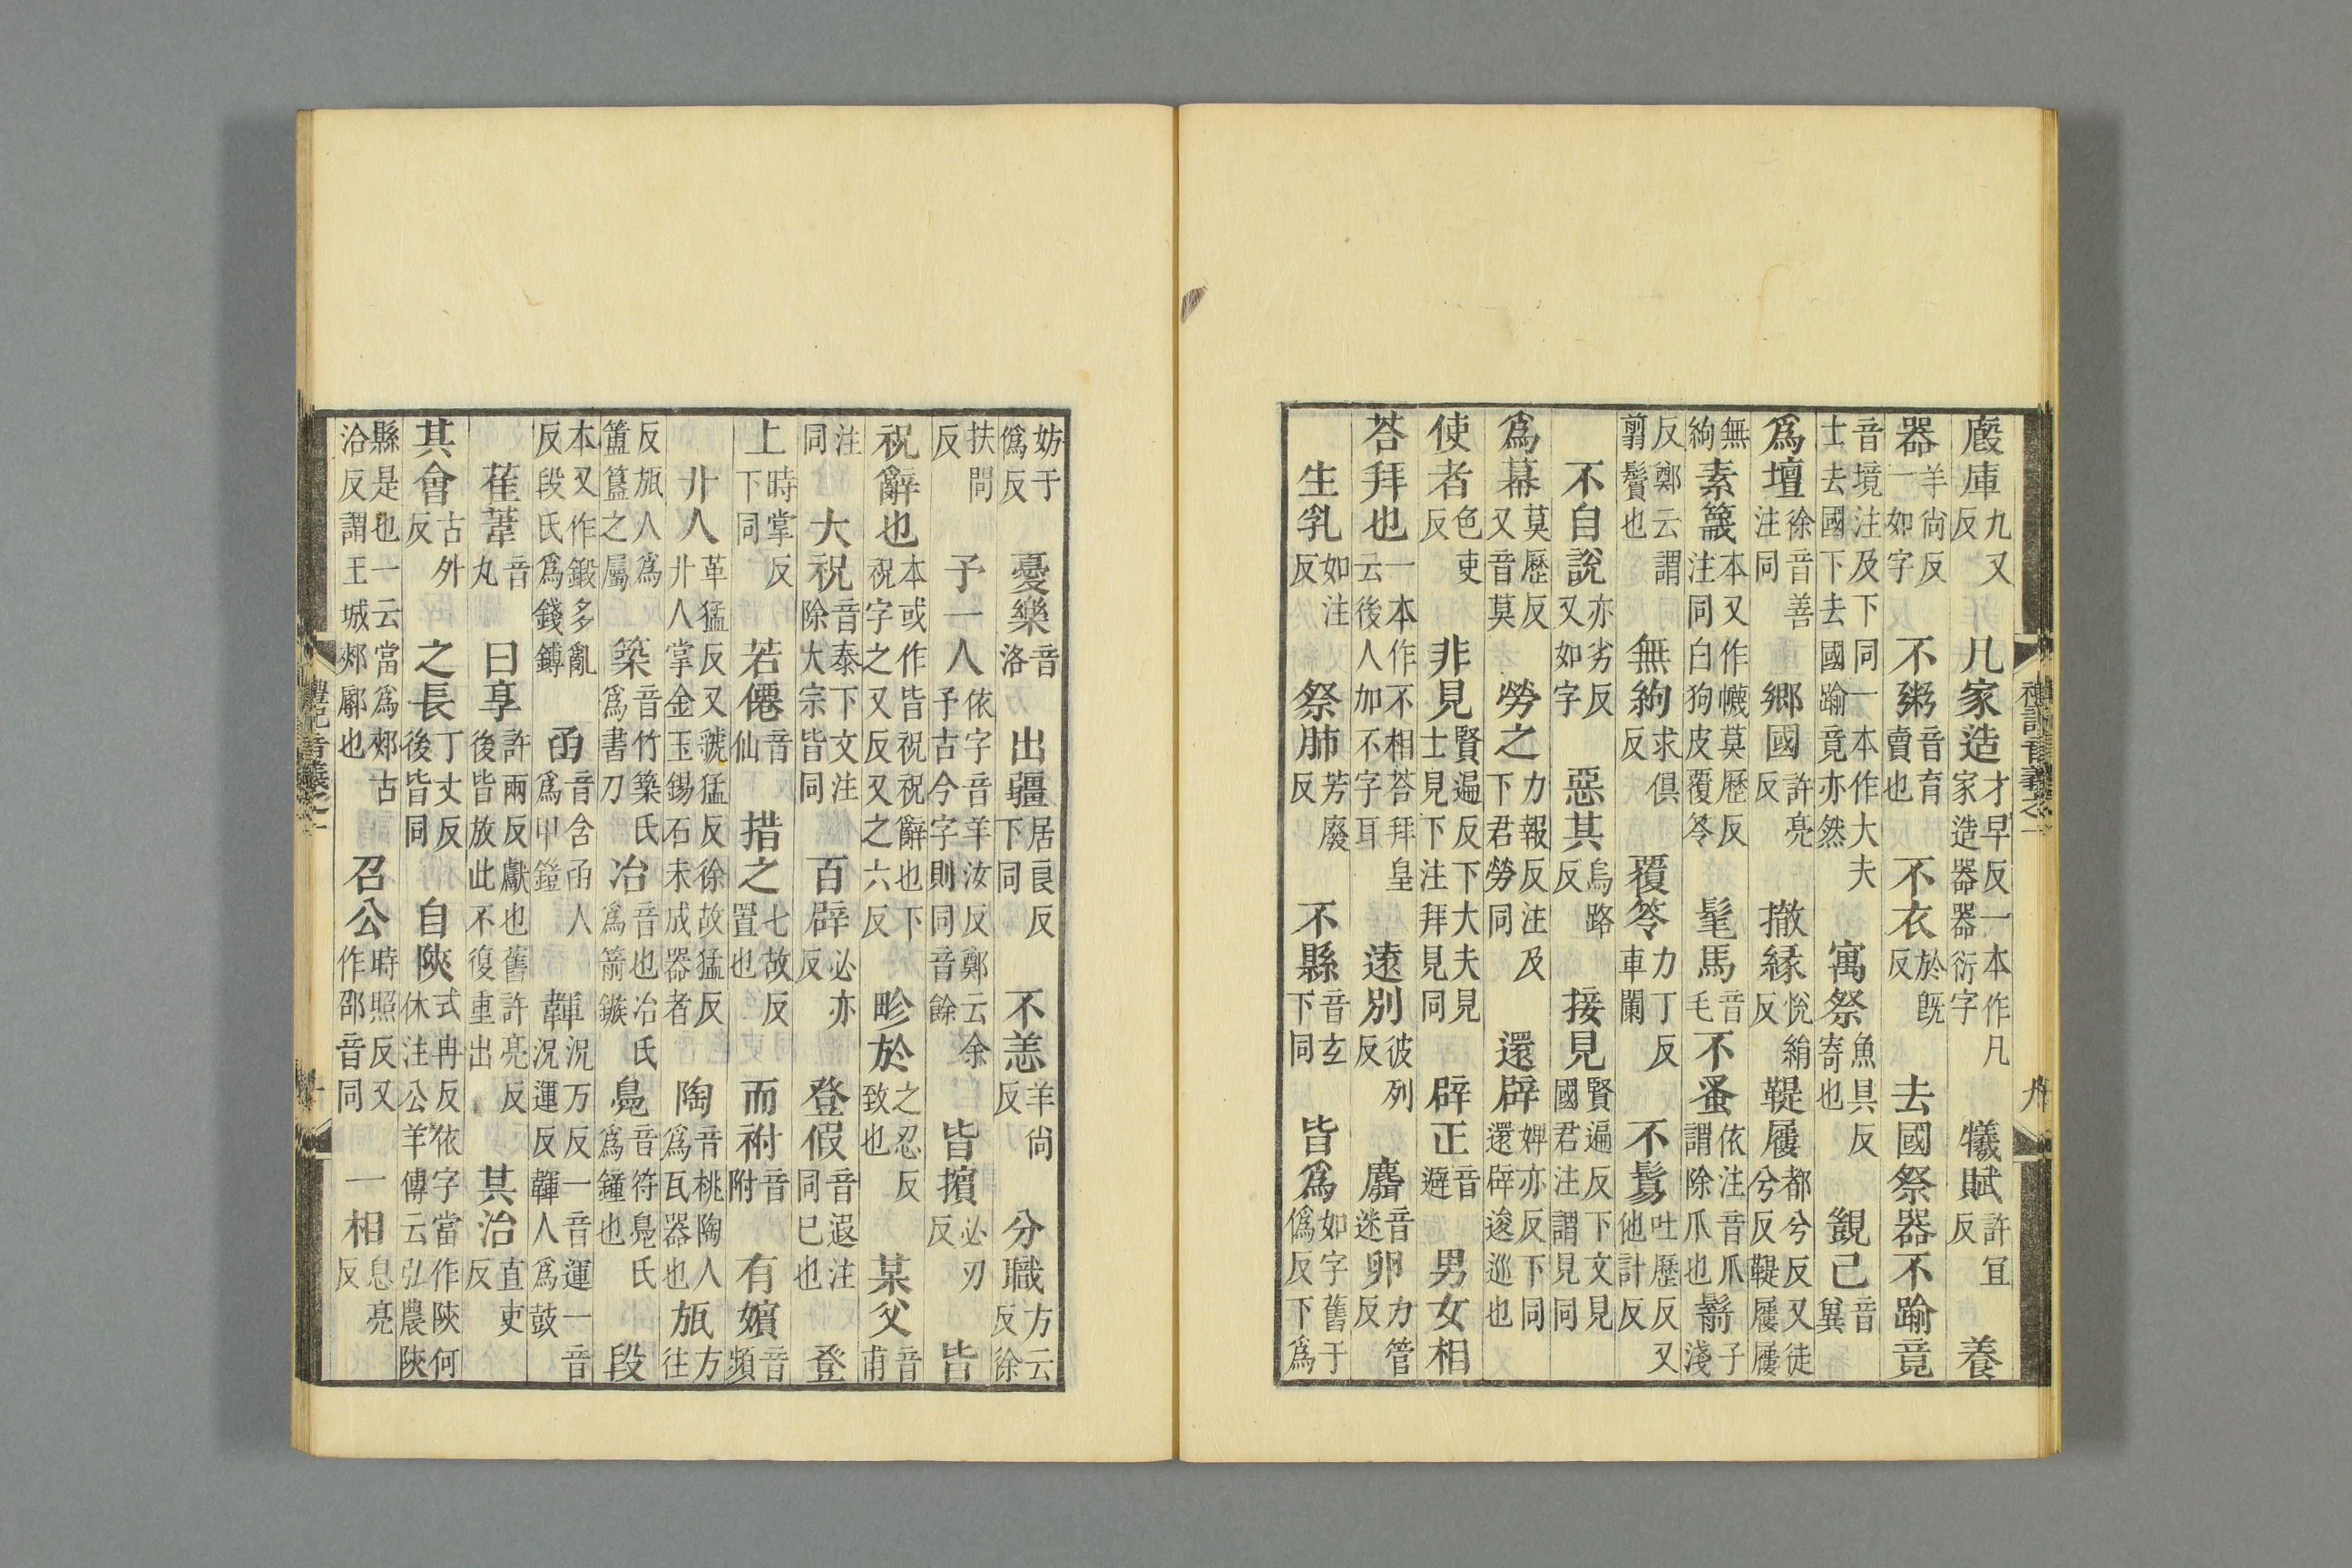 禮記音義之一
九
廄庫九又反凡家造才早反一本作凡家造器器衍字犧賦許宜反養
器羊尚反一如字不粥音育賣也不衣於既反去國祭器不踰竟
音境注及下同一本作大夫士去國下去國踰竟亦然寓祭魚具反寄也覬己音異
爲壇徐音善注同鄉國許亮反撤緣悅絹反鞮屨都兮反又徒兮反鞮屨屨
無絇素簚本又作幭莫歷反注同白狗皮覆笭髦馬音毛不蚤依注音爪謂除爪也鬋子淺
反鄭云謂翦鬢也無絇求俱反覆笭力丁反車闌不鬄吐歷反又他計反
不自說亦劣反又如字惡其烏路反接見賢遍反下文見國君注謂見同
爲幕莫歷反又音莫勞之力報反注及下君勞同還辟婢亦反下同還辟逡巡也
使者色吏反非見賢遍反下大夫見士見下注拜見同辟正音避男女相
荅拜也一本作不相荅拜皇云後人加不字耳遠別彼列反麛音迷卵力管反
生乳如注反祭肺芳廢反不縣音玄下同皆爲如字舊于僞反下爲
妨于僞反憂樂音洛出疆居良反下同不恙羊尚反分職方云反徐
扶問反予一人依字音羊汝反鄭云余予古今字則同音餘皆擯必刃反皆
祝辭也本或作皆祝祝辭也下祝字之又反又之六反畛於之忍反致也某父音甫
注同大祝音泰下文注除大宗皆同百辟必亦反登假音遐注同已也登
上時掌反下同若僊音仙措之七故反置也而祔音附有嬪音頻
廾人革猛反又虢猛反徐故猛反廾人掌金玉錫石未成器者陶音桃陶人爲瓦器也瓬方往
反瓬人爲簠簋之屬築音竹築氏爲書刀冶音也冶氏爲箭鏃鳧音符鳧氏爲鐘也段
本又作鍛多亂反段氏爲錢鎛函音含函人爲甲鎧韗況万反一音運一音況運反韗人爲鼓
萑葦音丸曰享許兩反獻也舊許亮反後皆放此不復重出其治直吏反
其會古外反之長丁丈反後皆同自陝式冉反依字當作陝何休注公羊傳云弘農陝
縣是也一云當爲郟古洽反謂王城郟鄏也召公時照反又作邵音同一相息亮反
禮記音義之一
十